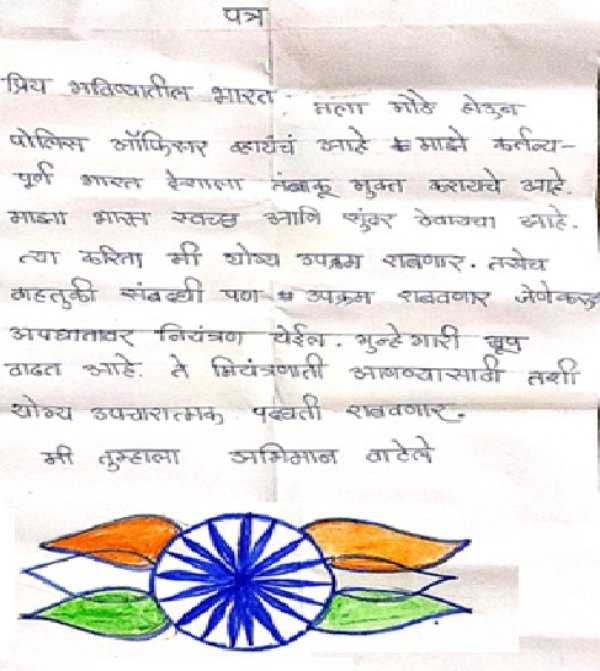 पत्र
प्रिय भविष्यातील भारत मला मोठे होऊन
पोलिस ऑफिसर व्हायचं आहे माझे कर्तव्य-
पूर्ण भारत देशाला तंबाकू मुक्त करायचे आहे.
माझा भारत स्वच्छ आणि सुंदर ठेवायचा आहे.
त्या करिता मी योग्य उपक्रम राबणार. तसेच
वाहतुकी संबंधी पण उपक्रम राबवणार जेणेकरून
अपघातावर नियंत्रण येईल. गुन्हेगारी खूप
वाढत आहे. ते नियंत्रणाती आणण्यासाठी तशी
योग्य उपचारात्मक पद्धती राबवणार.
मी तुम्हाला अभिमान वाटेले